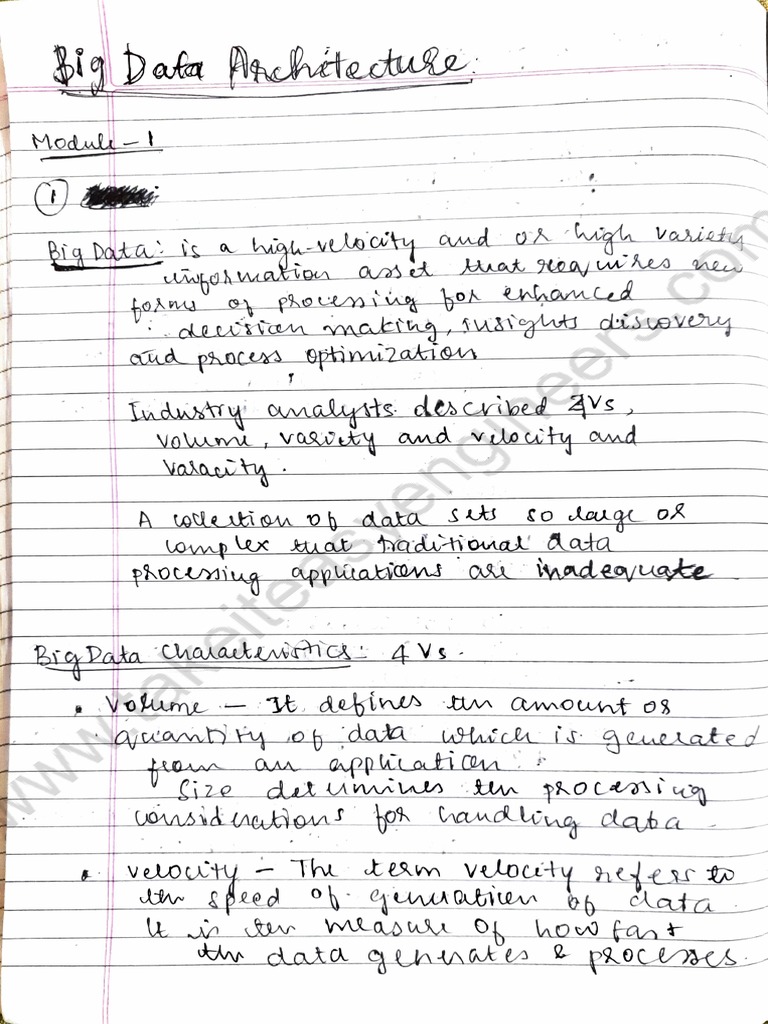 Big Data Architecture:
Module - 1
1
Big Data: is a high-velocity and or high variety
information asset that requires new
forms of processing for enhanced
decision making, insights discovery
and process optimization
Industry analysts described 4Vs,
volume, variety and velocity and
varacity.
A collection of data sets so large or
complex that traditional data
processing applications are inadequate
Big Data Characteristics: 4 Vs.
• Volume – It defines the amount or
quantity of data which is generated
from an application.
Size determines the processing
considerations for handling data.
• velocity – The term velocity refers to
the speed of generation of data.
It is the measure of how fast
the data generates & processes.
www.takeiteasyengineers.com